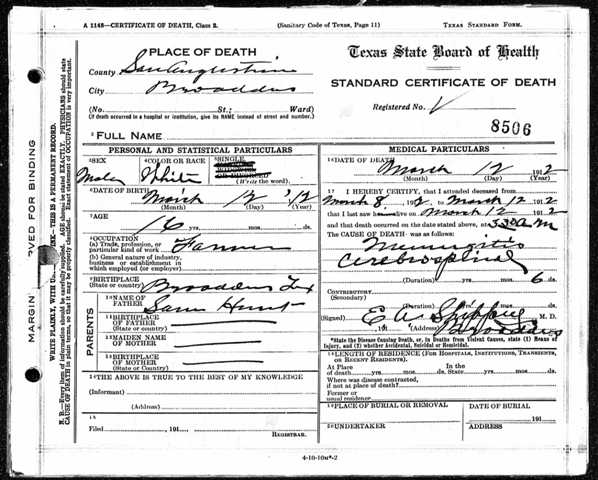 A 1148—CERTIFICATE OF DEATH, Class 2.
(Sanitary Code of Texas, Page 11)
TEXAS STANDARD FORM.
PLACE OF DEATH
County San Augustine
City Broaddus
(No. St.; Ward)
(If death occurred in a hospital or institution, give its NAME instead of street and number.)
Texas State Board of Health
STANDARD CERTIFICATE OF DEATH
Registered No.
8506
2 FULL NAME
PERSONAL AND STATISTICAL PARTICULARS
3 SEX
Male
4 COLOR OR RACE
White
5 SINGLE,
(Write the word).
6 DATE OF BIRTH
March 12 , 12
(Month) (Day) (Year)
7 AGE
16 yrs. mos. ds.
8 OCCUPATION
(a) Trade, profession, or
particular kind of work Farmer
(b) General nature of industry,
business or establishment in
which employed (or employer)
9 BIRTHPLACE
(State or country) Broaddus Tex
PARENTS
10 NAME OF
FATHER Sam Hunt
11 BIRTHPLACE OF
FATHER
(State or country)
12 MAIDEN NAME
OF MOTHER
13 BIRTHPLACE
OF MOTHER
(State or Country)
14 THE ABOVE IS TRUE TO THE BEST OF MY KNOWLEDGE
(Informant)
(Address)
15
Filed , 191
REGISTRAR.
MEDICAL PARTICULARS
16 DATE OF DEATH
March 12 1912
(Month) (Day) (Year)
17 I HEREBY CERTIFY, that I attended deceased from
March 8, 1912 to March 12 1912
that I last saw alive on March 12 1912
and that death occurred on the date stated above, at 5:30 A. M
The CAUSE OF DEATH was:
Meningitis
Cerebrospinal
(Duration) yrs. mos. 6 ds.
CONTRIBUTORY
(Secondary)
(Duration) yrs. mos. ds.
(Signed) E A M. D.
, 191 (Address) Broaddus
*State the Disease Causing Death, or, in Deaths from Violent Causes, state (1) Means of
Injury, and (2) whether Accidental, Suicidal or Homicidal.
18 LENGTH OF RESIDENCE (FOR HOSPITALS, INSTITUTIONS, TRANSIENTS,
OR RECENT RESIDENTS).
At Place In the
of death yrs. mos. ds. State yrs. mos. ds.
Where was disease contracted,
if not at place of death?
Former or
usual residence
19 PLACE OF BURIAL OR REMOVAL
DATE OF BURIAL
191
20 UNDERTAKER
ADDRESS
MARGIN
RVED FOR BINDING
WRITE PLAINLY, WITH
INK—THIS IS A PERMANENT RECORD.
N. B.—Every item of information should be carefully supplied. AGE should be stated EXACTLY. PHYSICIANS should state
CAUSE OF DEATH in plain terms, so that it may be properly classified. Exact statement of OCCUPATION is very important.